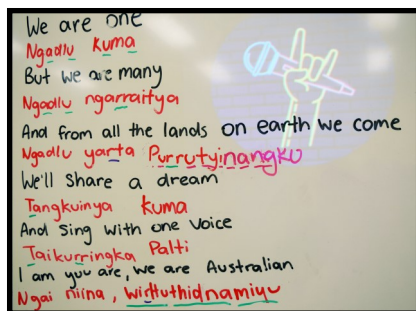 We are one
Ngadlu kuma
But we are many
Ngadlu ngarraitya
And from all the lands on earth we come
Ngadlu yarta Purrutyinangku
We'll share a dream
Tangkuinya kuma
And sing with one voice
Taikurringka Palti
I am you are, we are Australian
Ngai niina,